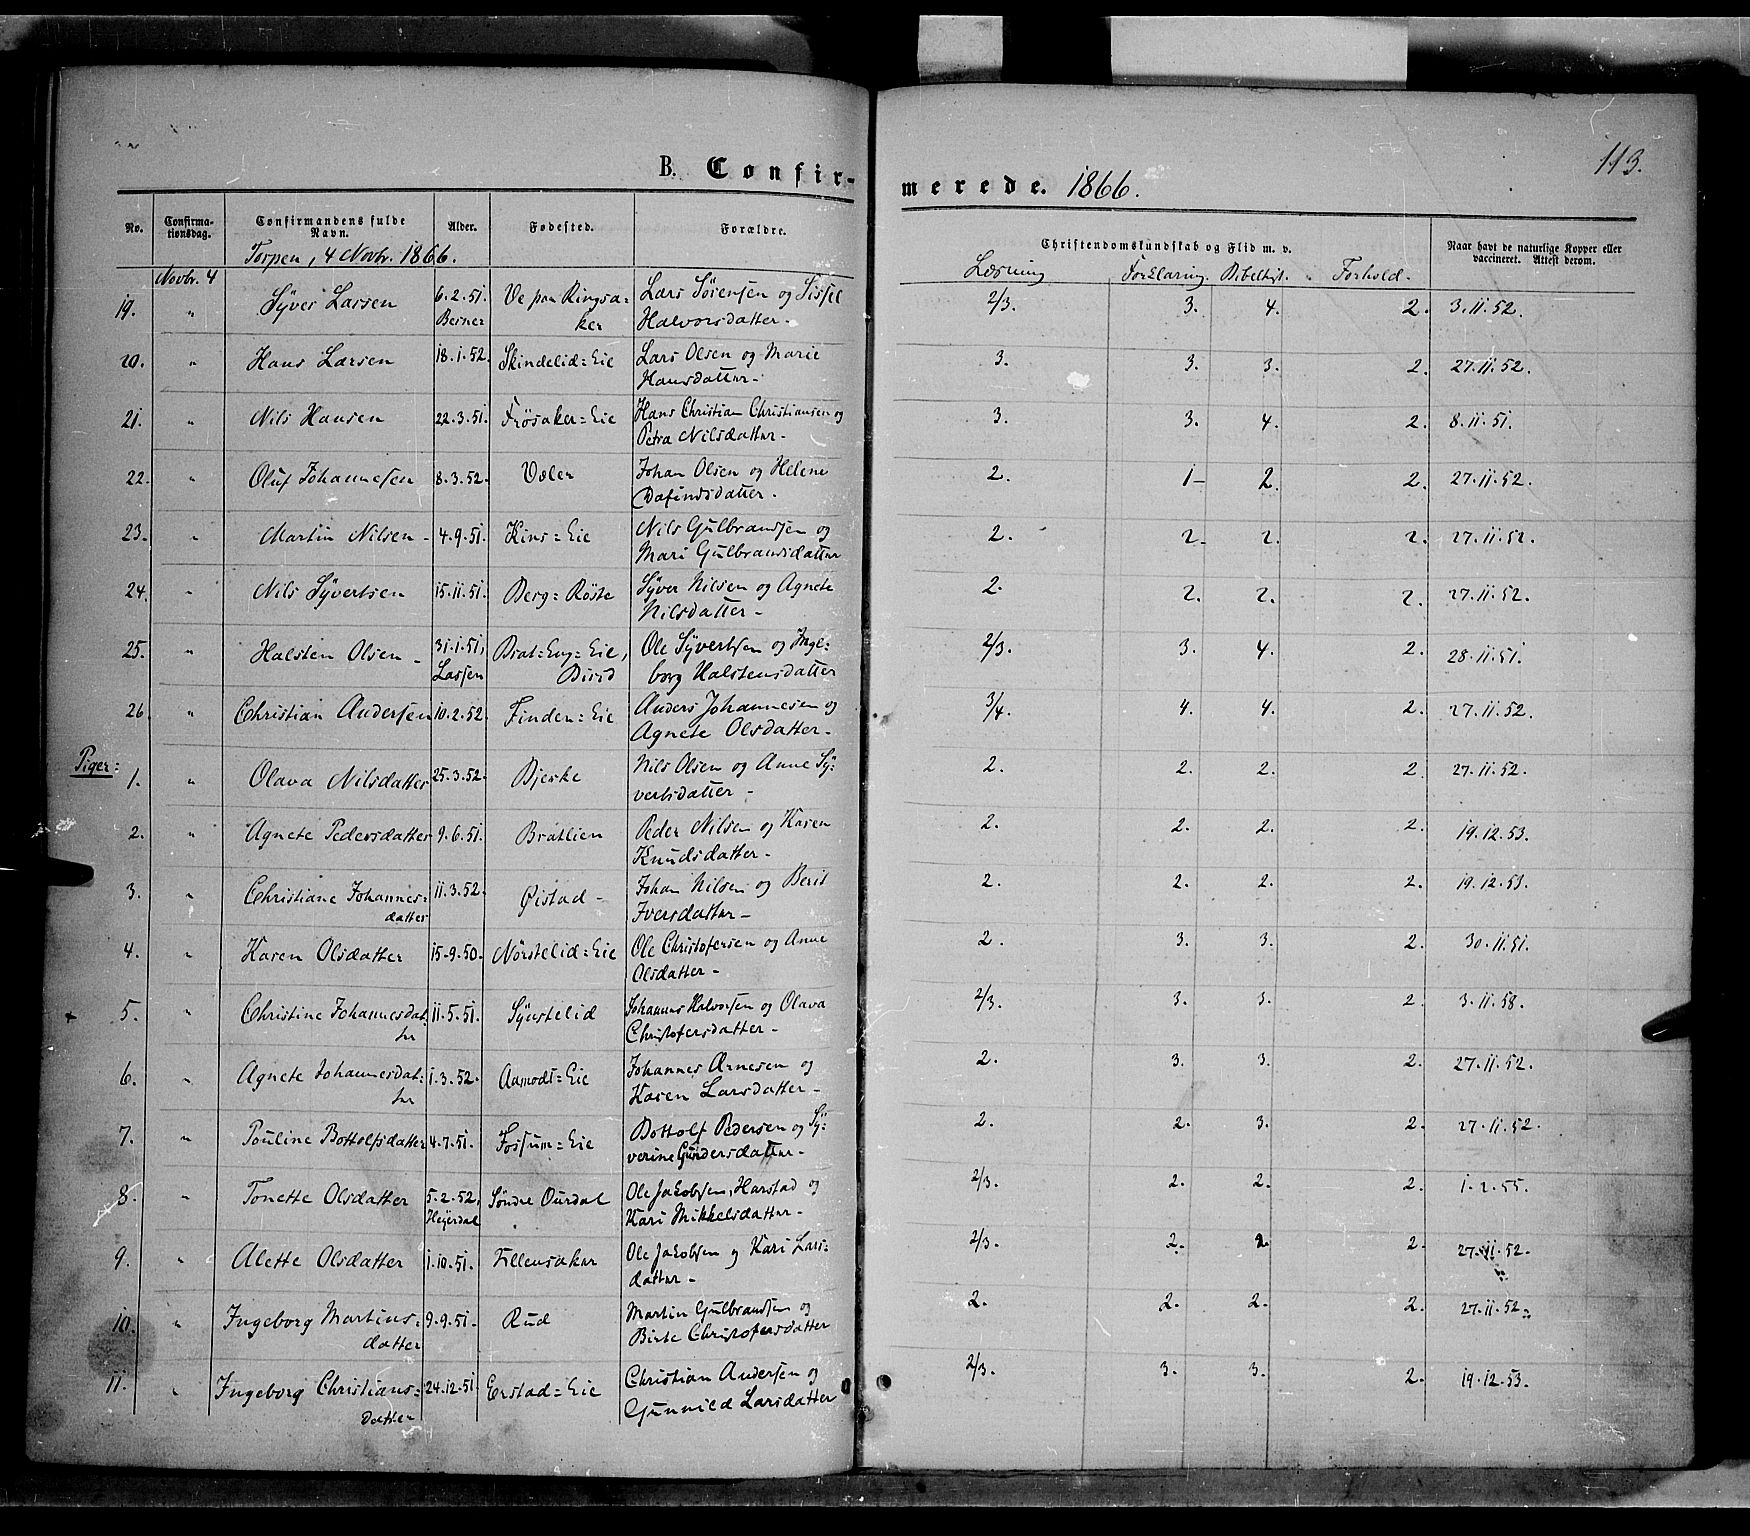 113.
B. Confirmerede. 1866.
No. Confirmationsdag. Confirmandens fulde Navn. Alder. Fødested. Forældre. Christendomskundskab og Flid m. v. Naar havt de naturlige Kopper eller vaccineret. Attest derom.
Torpen, 4 Novbr. 1866. Læsning Forklaring. Bibelhist. Forhold.
Novbr. 4
19. " Syver Larsen 6.2.51. Ve paa Ringsa- Lars Sørensen og Sissel 2/3. 3. 4. 2. 3.11.52.
Berner ker Halvorsdatter-
20. " Hans Larsen 18.1.52. Skindelid=Eie Lars Olsen og Marie 3. 3. 3. 2. 27.11.52.
Hansdatter-
21. " Nils Hansen 22.3.51. Frøsaker=Eie Hans Christian Christiansen og 3. 3. 4. 2. 8.11.51.
Petra Nilsdatter-
22. " Oluf Johannesen 8.3.52. Johan Olsen og Helene 2. 1- 2. 2. 27.11.52.
Dafindsdatter.
23. " Martin Nilsen- 4.9.51. Kins=Eie Nils Gulbrandsen og 2. 2- 2. 2. 27.11.52.
Mari Gulbrandsdatter
24. " Nils Syvertsen 15.11.51. Berg=Røste Syver Nilsen og Agnete 2. 2. 2. 2. 27.11.52.
Nilsdatter-
25. " Halsten Olsen- 31.1.51, Brat=Eng=Eie, Ole Syvertsen og Inge= 2/3. 3. 4. 2. 28.11.51.
Lassen Birid borg Halstensdatter
26. " Christian Andersen 10.2.52. Finden=Eie Anders Johannesen og 3/4. 4. 4. 2. 27.11.52.
Agnete Olsdatter-
Piger:
1. " Olava Nilsdatter 25.3.52. Bjerke Nils Olsen og Anne Sy= 2. 2. 2. 2. 27.11.52.
vertsdatter-
2. " Agnete Pedersdatter 9.6.51. Bratlien Peder Nilsen og Karen 2. 2. 2. 2. 19.12.53.
Knudsdatter-
3. " Christiane Johannes= 11.3.52. Øistad- Johan Nilsen og Berit 2. 2. 2. 2. 19.12.53.
datter Iversdatter-
4. " Karen Olsdatter 15.9.50. Nørstelid=Eie Ole Christofersen og Anne 2. 3. 3. 2. 30.11.51.
Olsdatter-
5. " Christine Johannesdat= 11.5.51. Synstelid Johannes Halvorsen og Olava 2/3. 3. 3. 2. 3.11.58.
ter Christofersdatter-
6. " Agnete Johannesdat= 1.3.52. Aamodt=Eie Johannes Arnesen og 2. 3. 3. 2. 27.11.52.
ter Karen Larsdatter-
7. " Pouline Bottolfsdatter 4.7.51. Fossum=Eie Bottolf Pedersen og Sy= 2. 2. 3. 2. 27.11.52.
verine Gundersdatter-
8. " Tonette Olsdatter 5.2.52, Søndre Ourdal Ole Jakobsen, Harstad og 2/3. 2. 2. 2. 1.2.55.
Heyerdal Kari Mikkelsdatter-
9. " Alette Olsdatter 1.10.51. Fillensaker Ole Jakobsen og Kari Lars= 2/3. 2- 2. 2. 27.11.52.
datter-
10. " Ingeborg Martins= 9.9.51. Rud Martin Gulbrandsen og 2. 2. 2. 2. 27.11.52.
datter Birte Christofersdatter
11. " Ingeborg Christians= 24.12.51. Erstad=Eie Christian Andersen og 2/3. 3. 3. 2. 19.12.53.
datter Gunnild Larsdatter